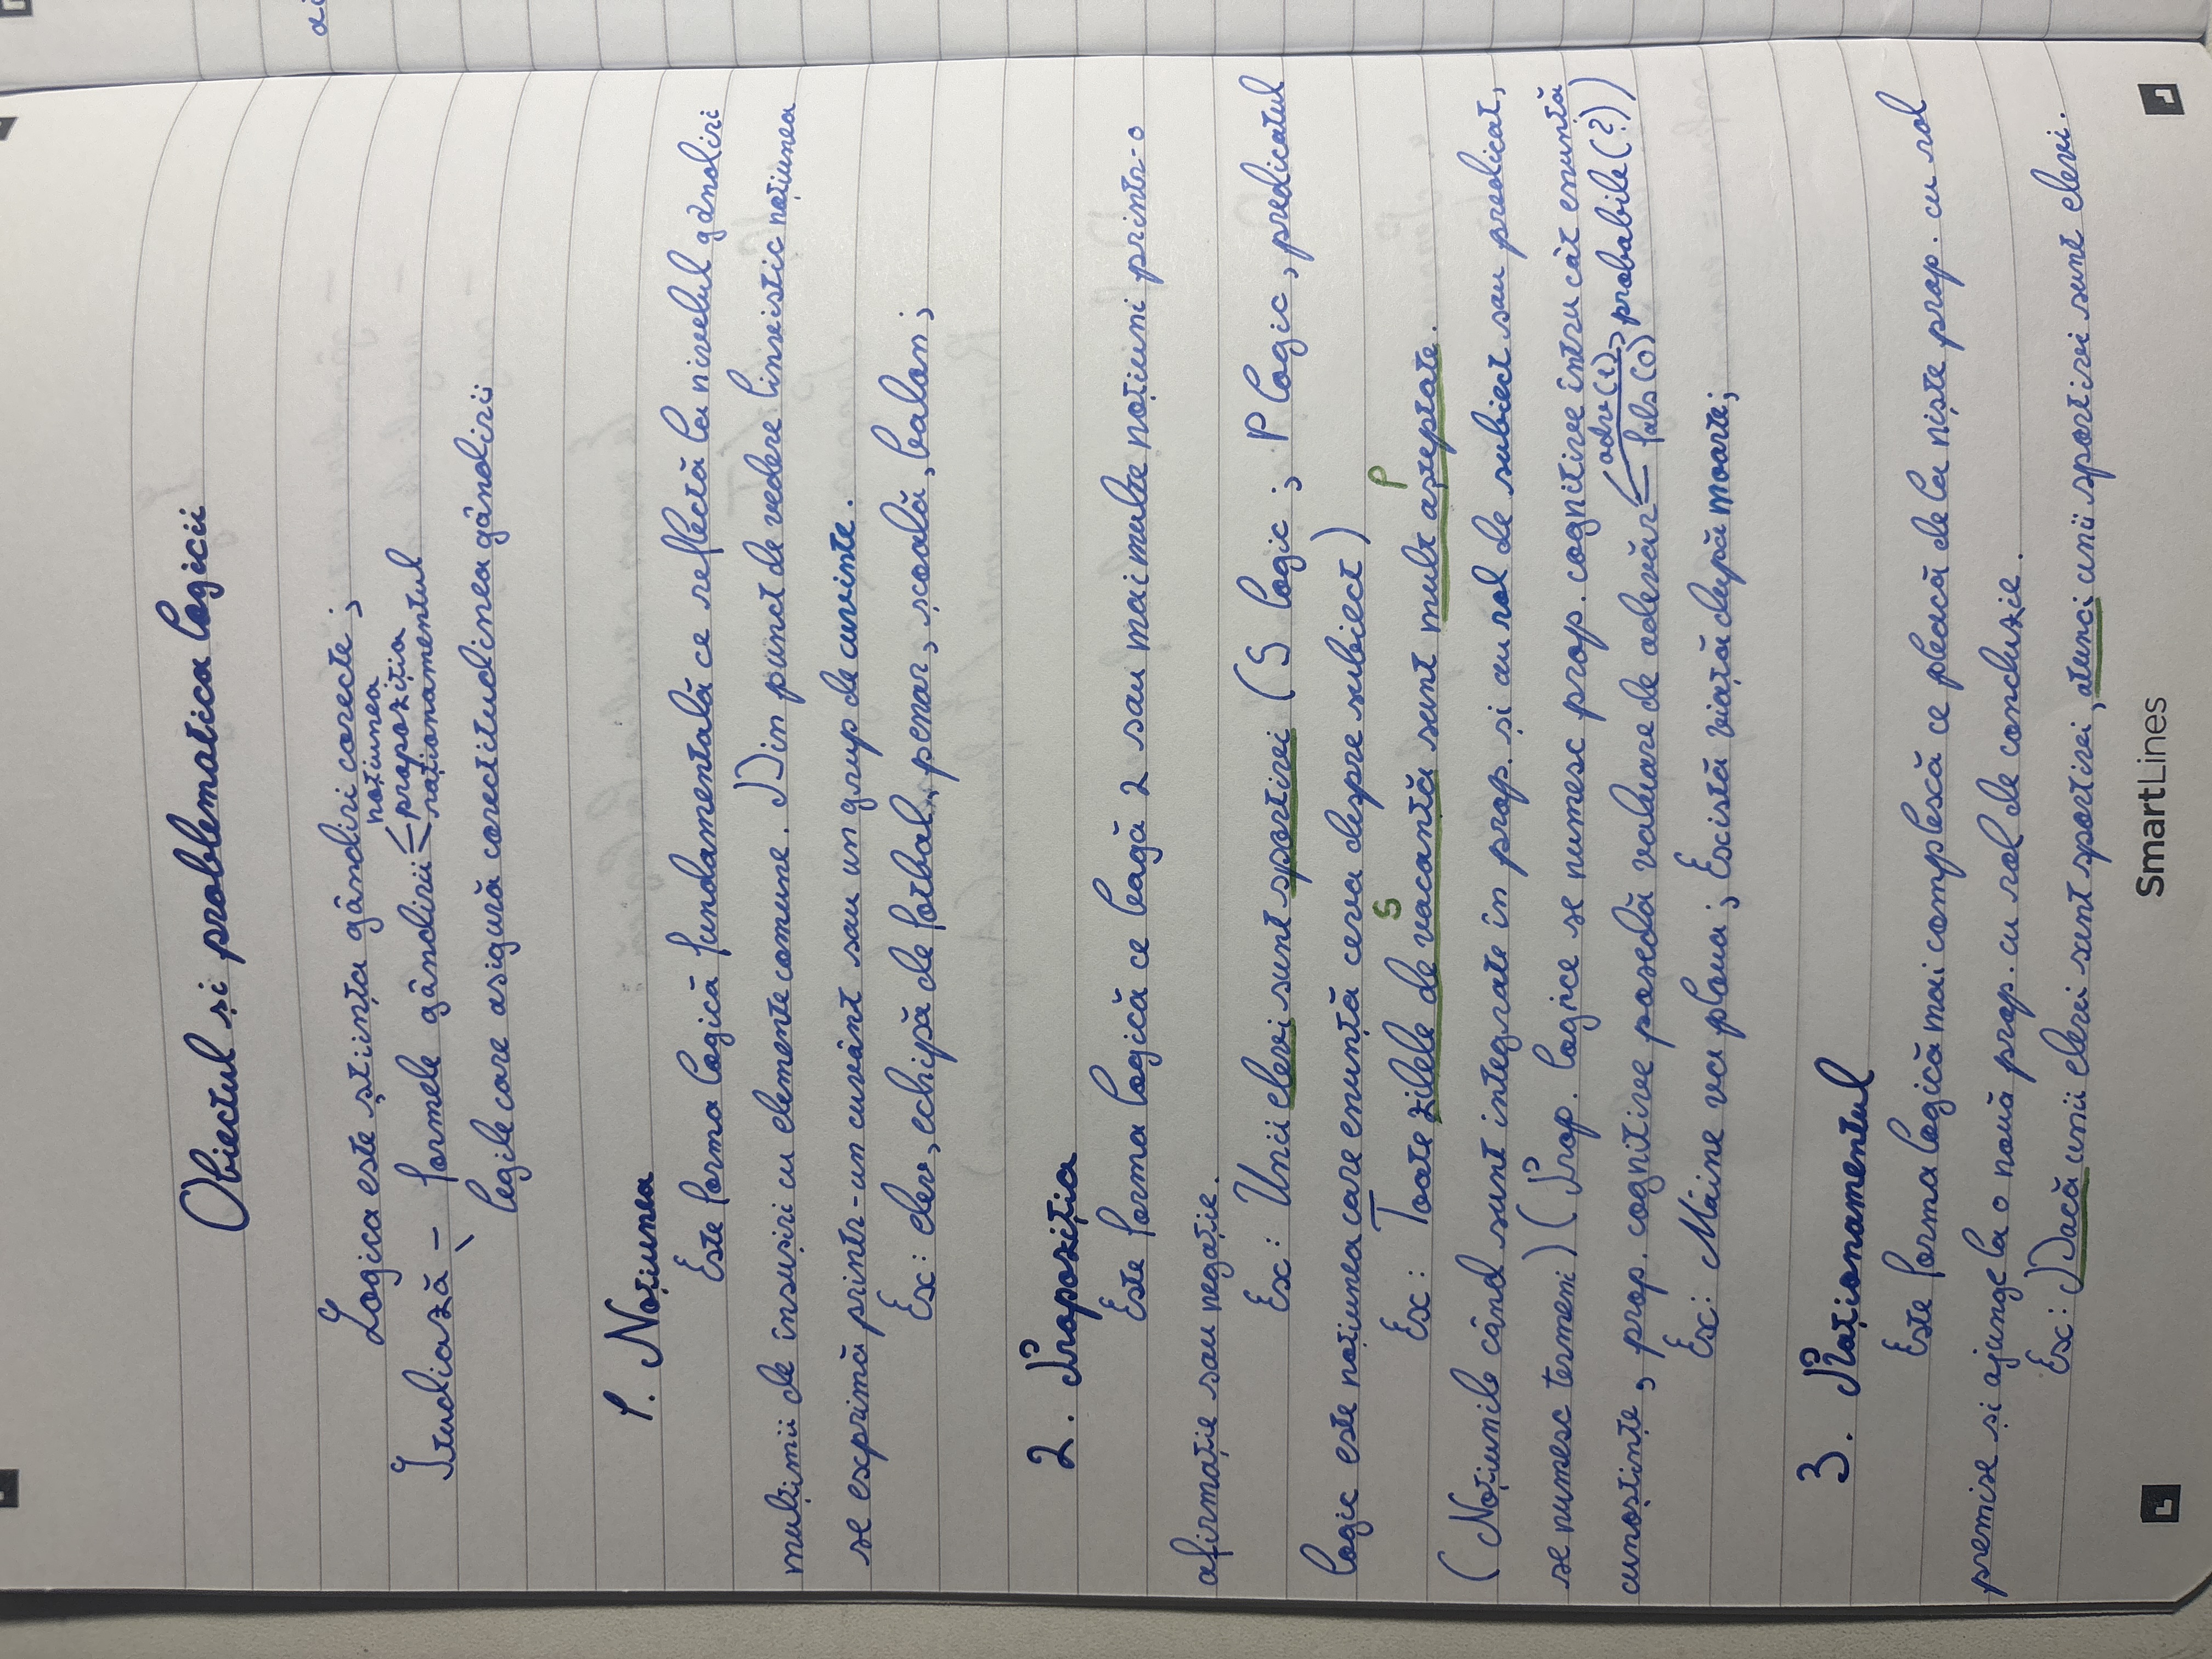 Obiectul și problematica logicii
Logica este știința gândiri corecte;
noțiunea
Studiază - formele gândirii < propoziția
raționamentul
legile care asigură corectitudinea gândirii
1. Noțiunea
Este forma logică fundamentală ce reflectă la nivelul gândiri
mulțimii de însușiri cu elemente comune. Din punct de vedere linvistic noțiunea
se exprimă printr-un cuvânt sau un grup de cuvinte.
Ex: elev, echipă de fotbal, penar, școală, balon;
2. Propoziția
Este forma logică ce leagă 2 sau mai multe noțiuni printr-o
afirmație sau negație.
Ex: Unii elevi sunt sportivi (S logic; P logic, predicatul
logic este noțiunea care enunță ceva despre subiect)
S P
Ex: Toate zilele de vacantă sunt mult așteptate.
(Noțiunile când sunt integrate în prop. și au rol de subiect sau predicat,
se numesc termeni) (Prop. logice se numesc prop. cognitive întru cât enunță
cunoștințe, prop. cognitive posedă valoare de adevăr < adv (1) fals (0) probabile (?))
Ex: Mâine va ploua; Există viață după moarte;
3. Raționamentul
Este forma logică mai complexă ce pleacă de la niște prop. cu rol
premise și ajunge la o nouă prop. cu rol de concluzie.
Ex: Dacă unii elevi sunt sportivi, atunci unii sportivi sunt elevi.
SmartLines